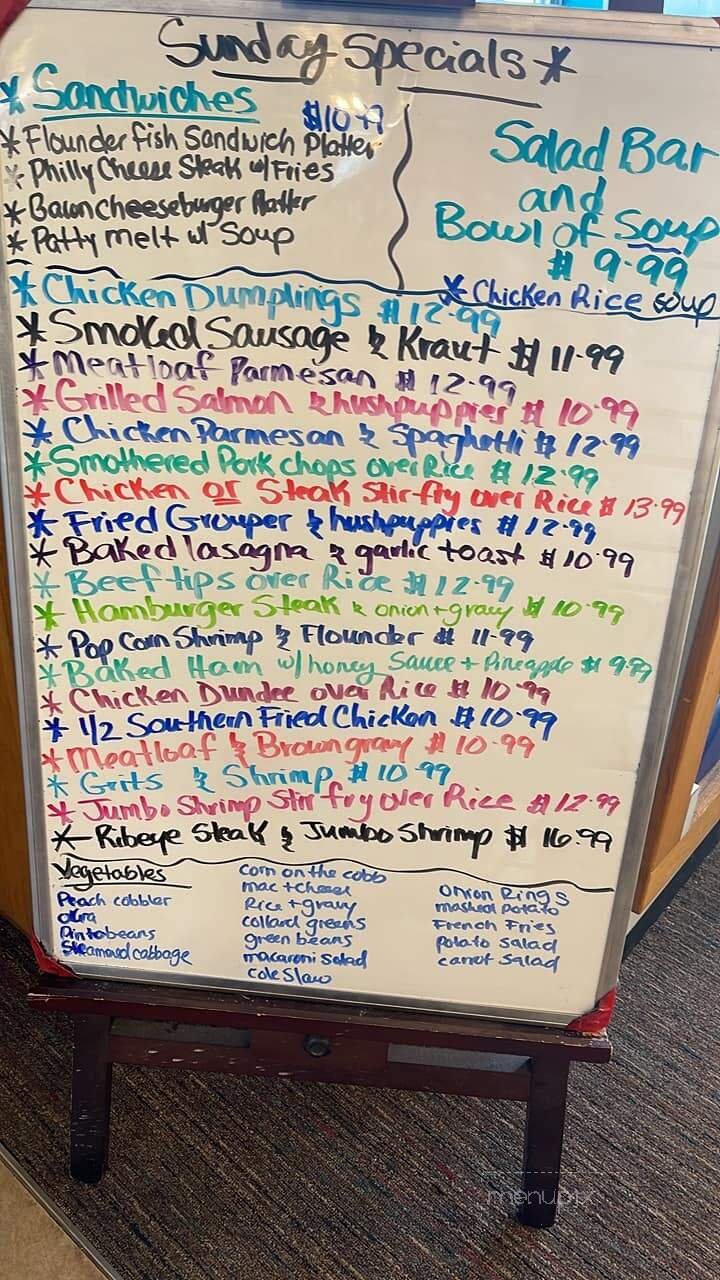 Sunday Specials *
* Sandwiches $10.99
* Flounder fish Sandwich Platter
* Philly Cheese Steak w/ Fries
* Bacon cheeseburger Platter
* Patty melt w/ Soup
Salad Bar
and
Bowl of Soup
$ 9.99
* Chicken Rice soup
* Chicken Dumplings $12.99
* Smoked Sausage & Kraut $ 11.99
* Meatloaf Parmesan $ 12.99
* Grilled Salmon & hushpuppies $ 10.99
* Chicken Parmesan & Spaghetti $ 12.99
* Smothered Pork chops over Rice $ 12.99
* Chicken or Steak Stir-fry over Rice $ 13.99
* Fried Grouper & hushpuppies $ 12.99
* Baked lasagna & garlic toast $ 10.99
* Beef tips over Rice $ 12.99
* Hamburger Steak & onion + gravy $ 10.99
* Pop Corn Shrimp & Flounder $ 11.99
* Baked Ham w/ honey Sauce + Pineapple $ 9.99
* Chicken Dundee over Rice $ 10.99
* 1/2 Southern Fried Chicken $10.99
* Meatloaf & Brown gravy $ 10.99
* Grits & Shrimp $ 10.99
* Jumbo Shrimp Stir fry over Rice $ 12.99
* Ribeye Steak & Jumbo Shrimp $ 16.99
Vegetables
Peach cobbler
okra
Pinto beans
Steamed cabbage
corn on the cobb
mac + cheese
Rice + gravy
collard greens
green beans
macaroni salad
cole slaw
Onion Rings
mashed potato
French Fries
potato salad
carrot salad
menupix